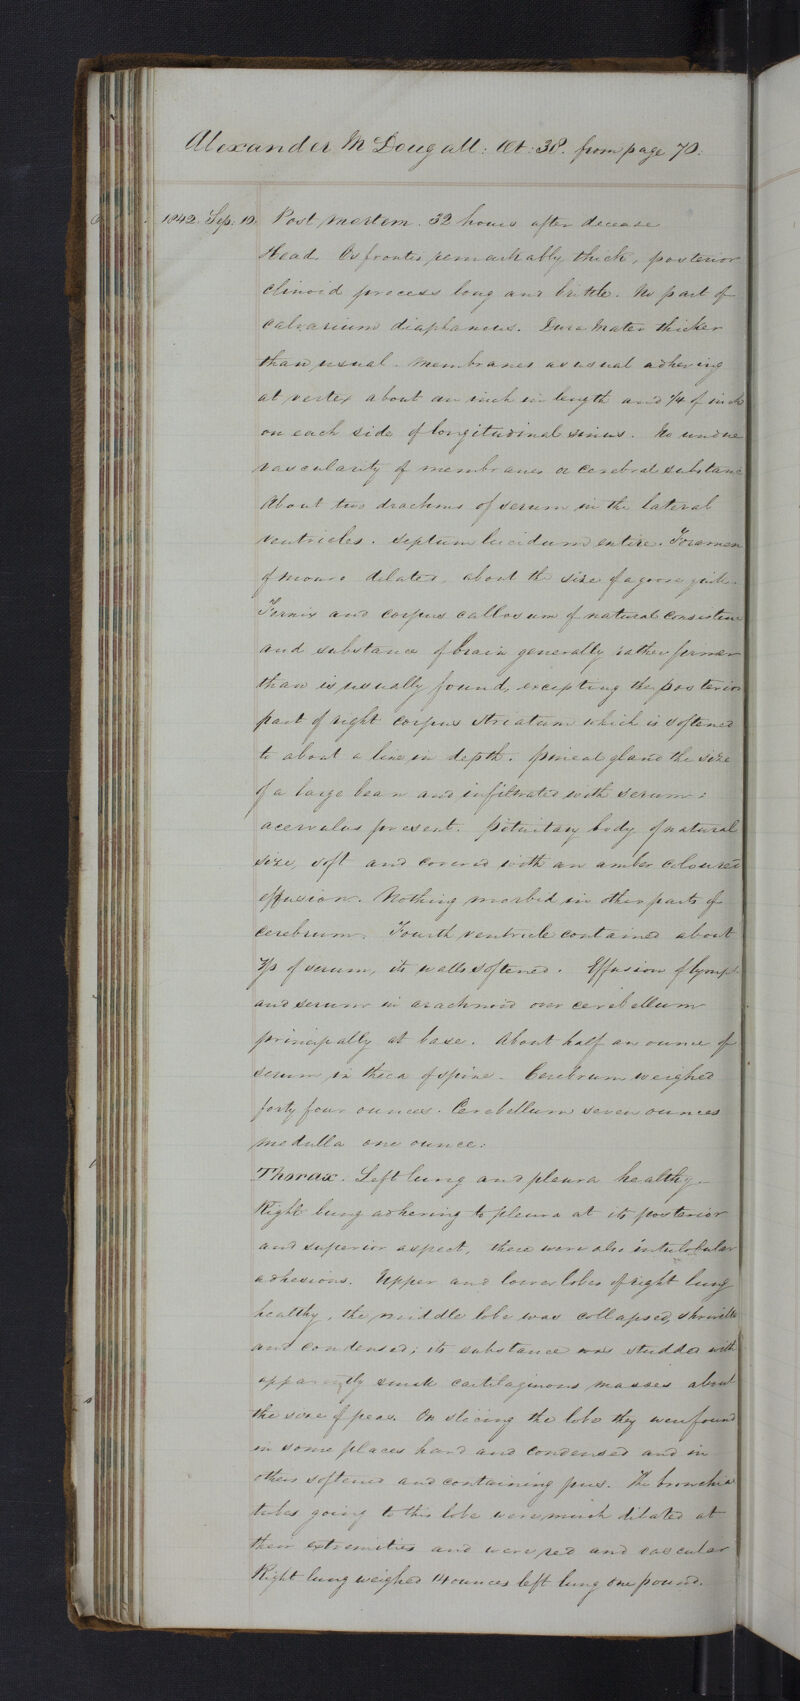 Alexander McDougall: Æt: 38. from page 70.
1842. Sep: 10. Post mortem. 32 hours after decease
Head. Os frontis remarkably thick, posterior
clinoid process long and brittle. No part of
calvarium diaphanous. Dura Mater thicker
than usual. Membranes as usual adhering
at vertex about an inch in length and 1/4 of inch
on each side of longitudinal sinus. No undue
vascularity of membranes or cerebral substance
About two drachms of serum in the lateral
ventricles. Septum lucidum entire. Foramen
of monro dilated, about the size of a goose quill.
Fornix and corpus callosum of natural consistence
and substance of brain generally rather firmer
than is usually found, excepting the posterior
part of right corpus striatum which is softened
to about a line in depth. pineal gland the size
of a large bean and infiltrated with serum:
acervulus present. pituitary body of natural
size, soft and covered with an amber coloured
effusion. Nothing morbid in other parts of
cerebrum. Fourth ventricle contained about
of serum, its walls softened. Effusion of lymph
and serum in arachnoid over cerebellum
principally at base. About half an ounce of
serum in theca of spine. Cerebrum weighed
forty four ounces. Cerebellum seven ounces
medulla one ounce.
Thorax. Left lung and pleura healthy.
Right lung adhering to pleura at its posterior
and superior aspect, there were also interlobular
adhesions. Upper and lower lobes of right lung
healthy, the middle lobe was collapsed, shrivelled
and condensed; its substance was studded with
apparently small cartilaginous masses about
the size of peas. On slicing the lobe they were found
in some places hard and condensed and in
others softened and containing pus. The bronchial
tubes going to this lobe were much dilated at
their extremities and were red and vascular
Right lung weighed 14 ounces left lung one pound.